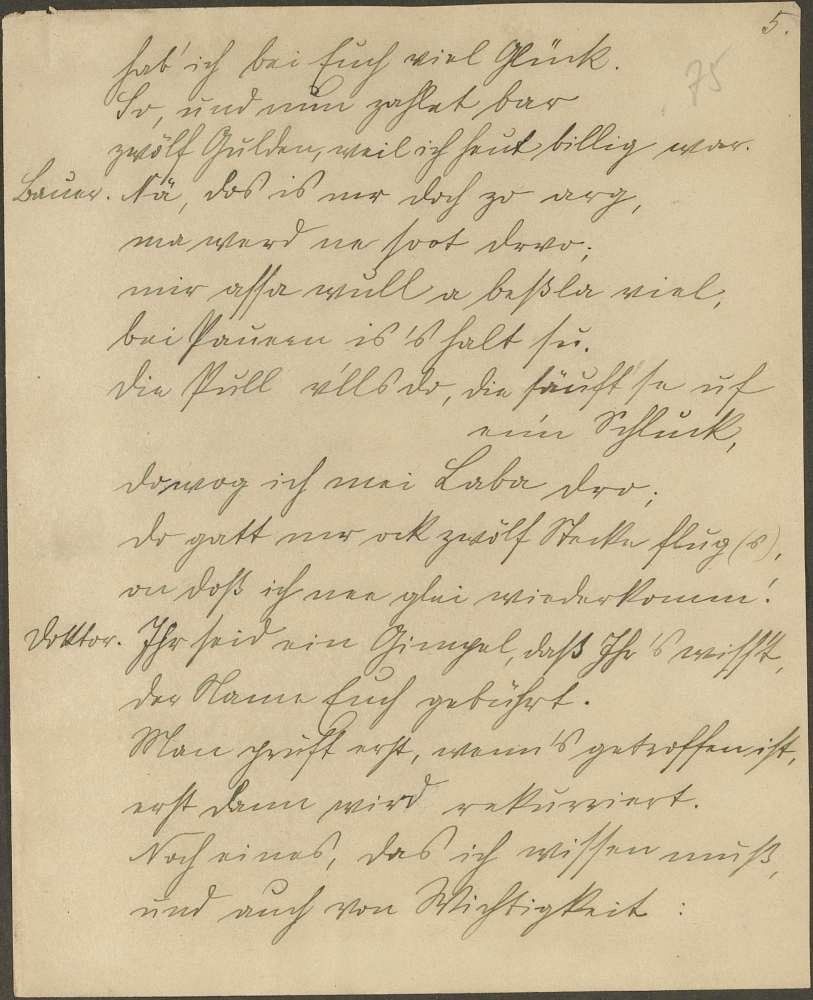 5.
75
hab' ich bei Euch viel Glück.
So, und nun zahlet bar
zwölf Gulden, weil ich heut billig war.
Bauer. Nä, dos is mr doch zo arg,
ma werd ne soot drvo;
mir assa wull a beßla viel,
bei Pauern is's halt su.
Die Pull do, die säuft se uf
ein Schluck,
do wog ich mei Laba dro;
do gatt mr ock zwölf Stecke flug(s),
on doß ich nee glei wiederkomm!
Doktor. Ihr seid ein Gimpel, daß Ihr's wißt,
der Name Euch gebührt.
Man prüft erst, wenn's getroffen ist,
erst dann wird rekurriert.
Noch eines, das ich wissen muß,
und auch von Wichtigkeit :